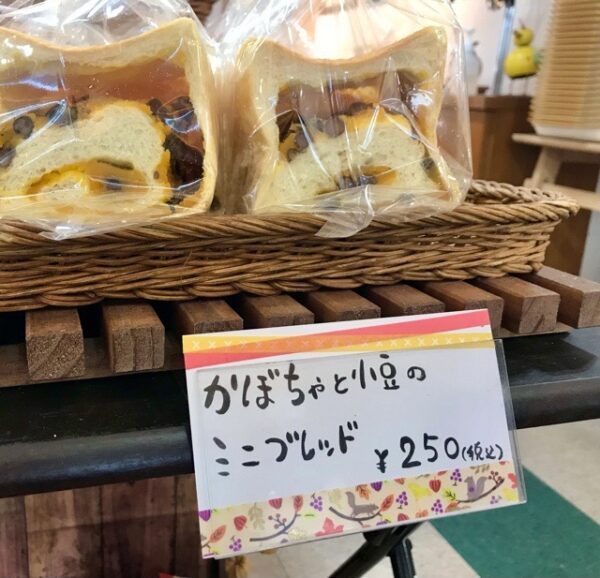 かぼちゃと小豆の
ミニブレッド ¥250(税込)